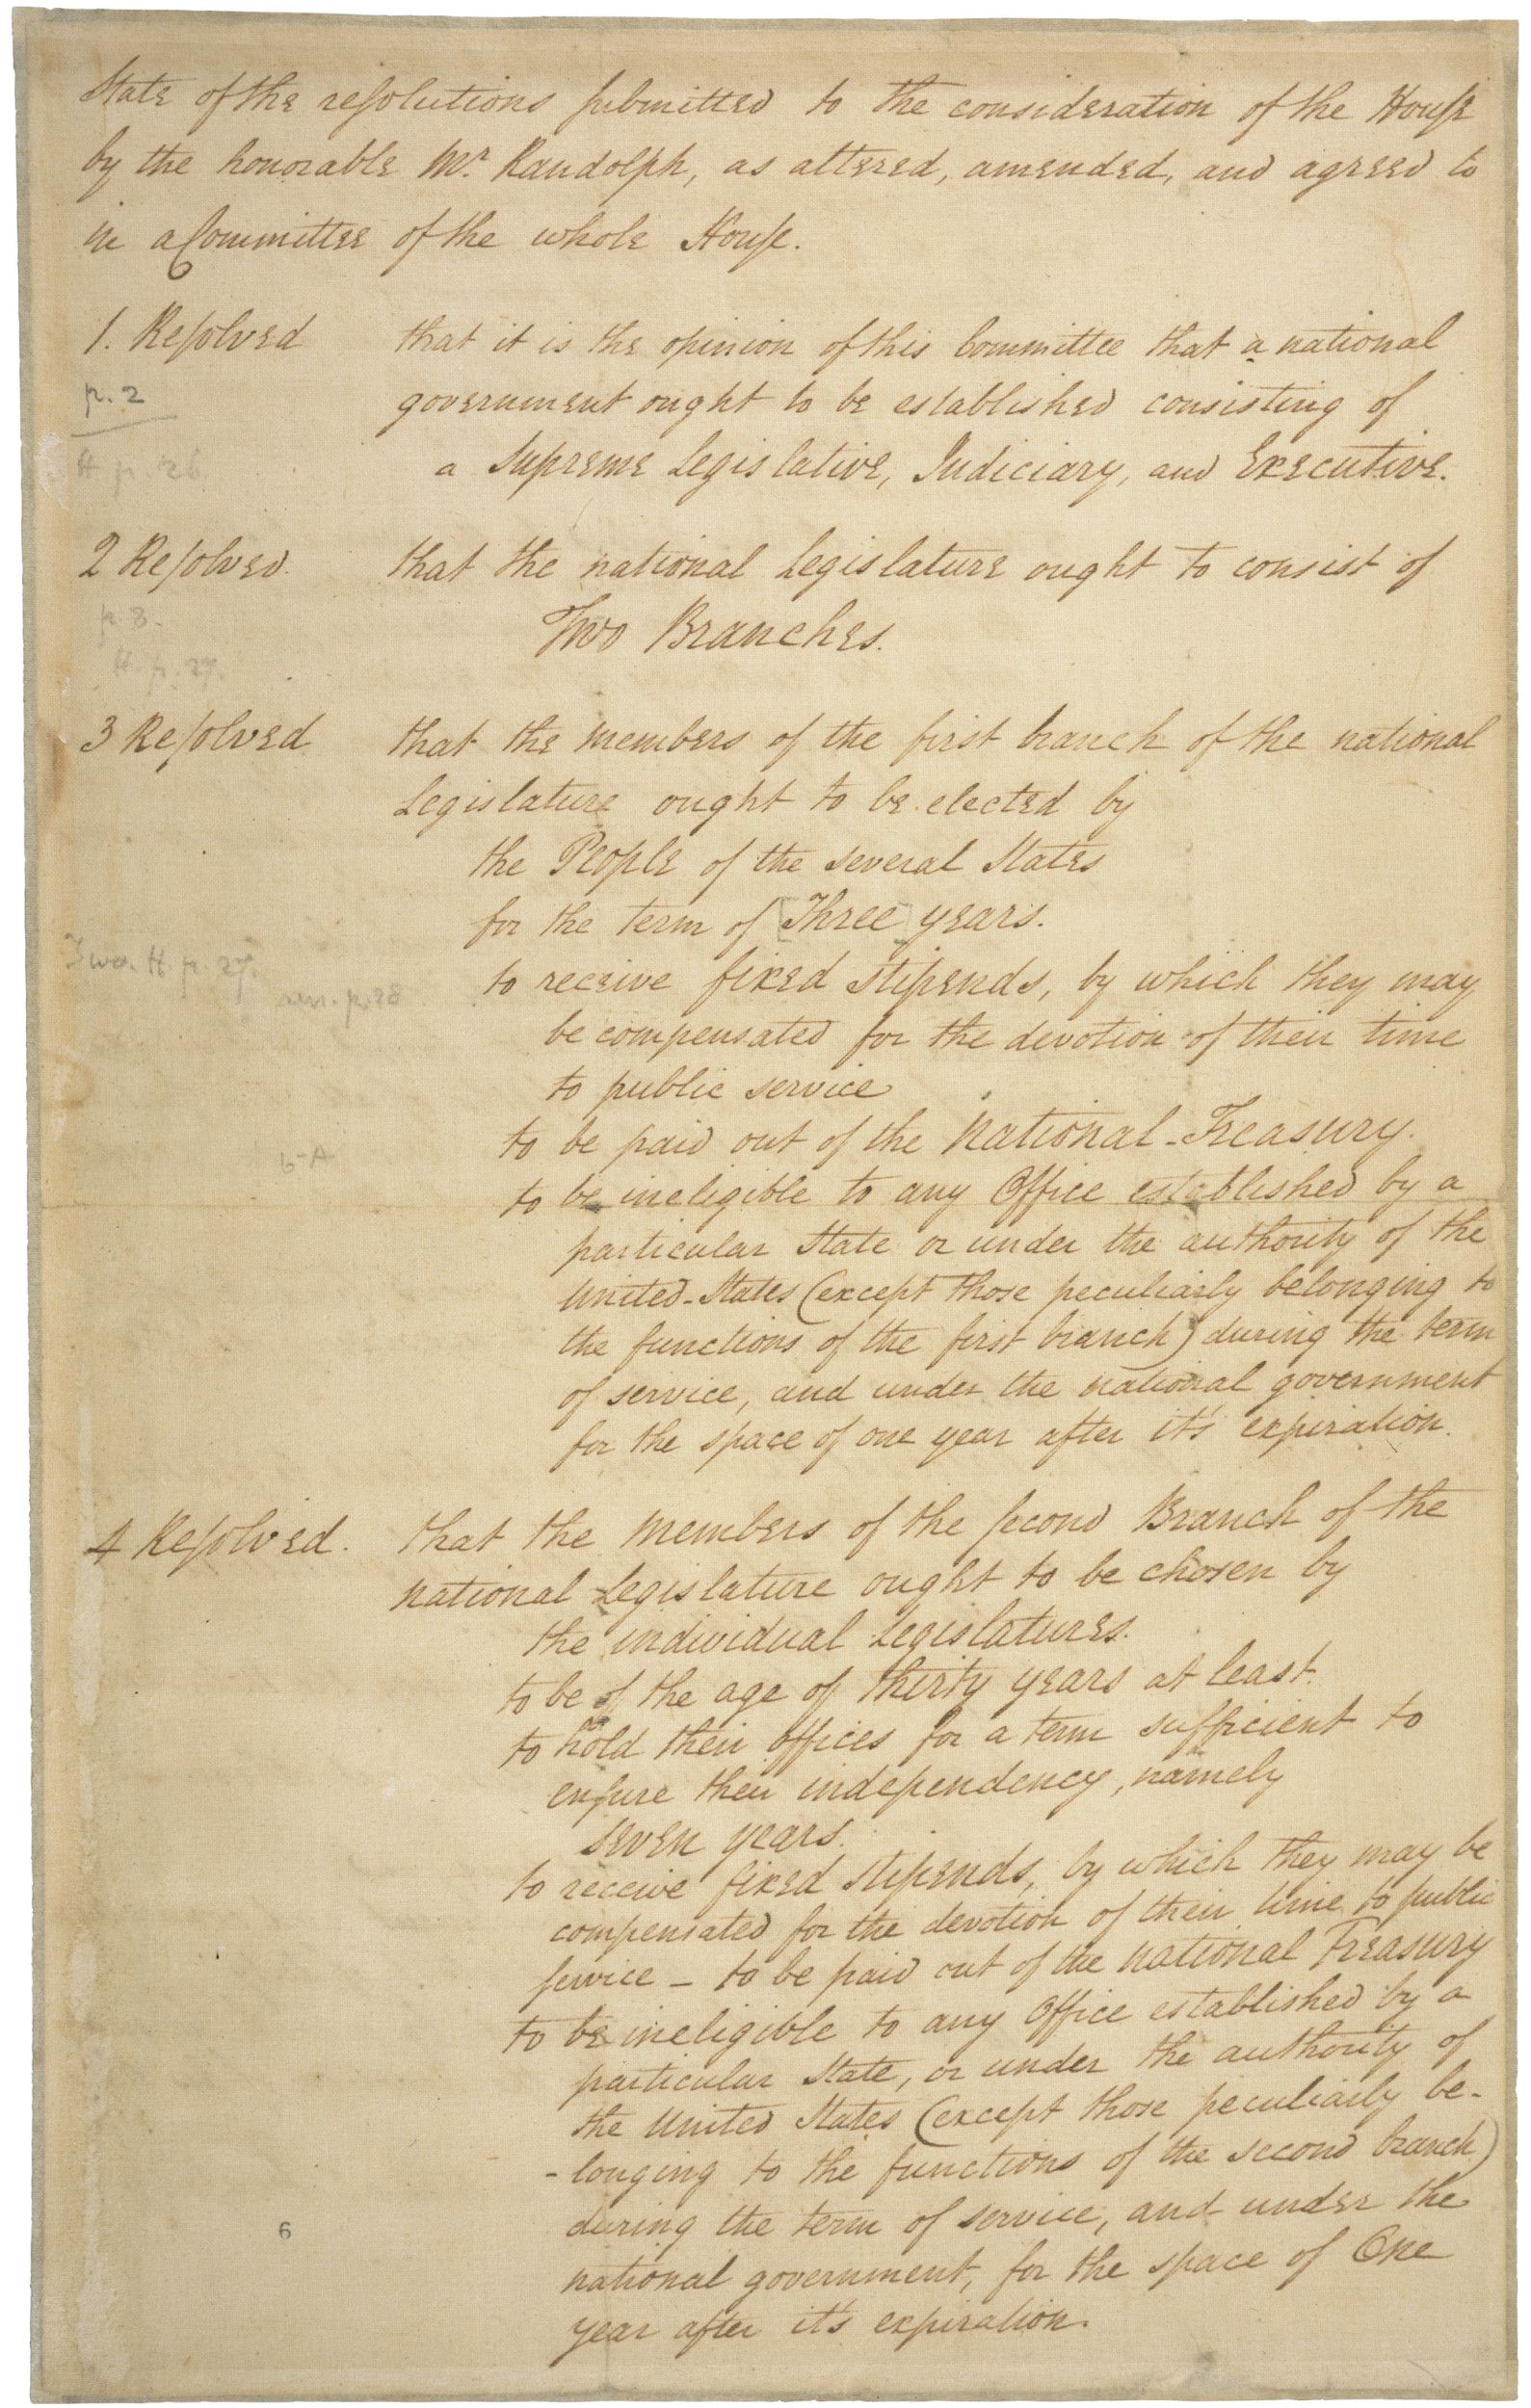 State of the resolutions submitted to the consideration of the House
by the honorable Mr. Randolph, as altered, amended, and agreed to
in a Committee of the whole House.
1. Resolved that it is the opinion of this Committee that a national
p. 2
government ought to be established consisting of
H p. 26
a Supreme Legislative, Judiciary, and Executive.
2 Resolved. that the national Legislature ought to consist of
p 3.
Two Branches.
H. p. 27.
3 Resolved that the Members of the first branch of the national
Legislature ought to be elected by
the People of the several States
for the term of [Three] years.
Two. H. p. 27.
to receive fixed stipends, by which they may
p. 28
be compensated for the devotion of their time
to public service
to be paid out of the National-Treasury.
to be ineligible to any Office established by a
particular State or under the authority of the
United-States (except those peculiarly belonging to
the functions of the first branch) during the term
of service, and under the national government
for the space of one year after it's expiration.
4 Resolved. that the Members of the second Branch of the
national Legislature ought to be chosen by
the individual Legislatures.
to be of the age of thirty years at least.
to hold their offices for a term sufficient to
ensure their independency, namely
seven years.
to receive fixed stipends, by which they may be
compensated for the devotion of their time to public
service - to be paid out of the National Treasury
to be ineligible to any Office established by a
particular State, or under the authority of
the United States (except those peculiarly be-
-longing to the functions of the second branch)
during the term of service, and under the
6
national government, for the space of One
year after it's expiration.